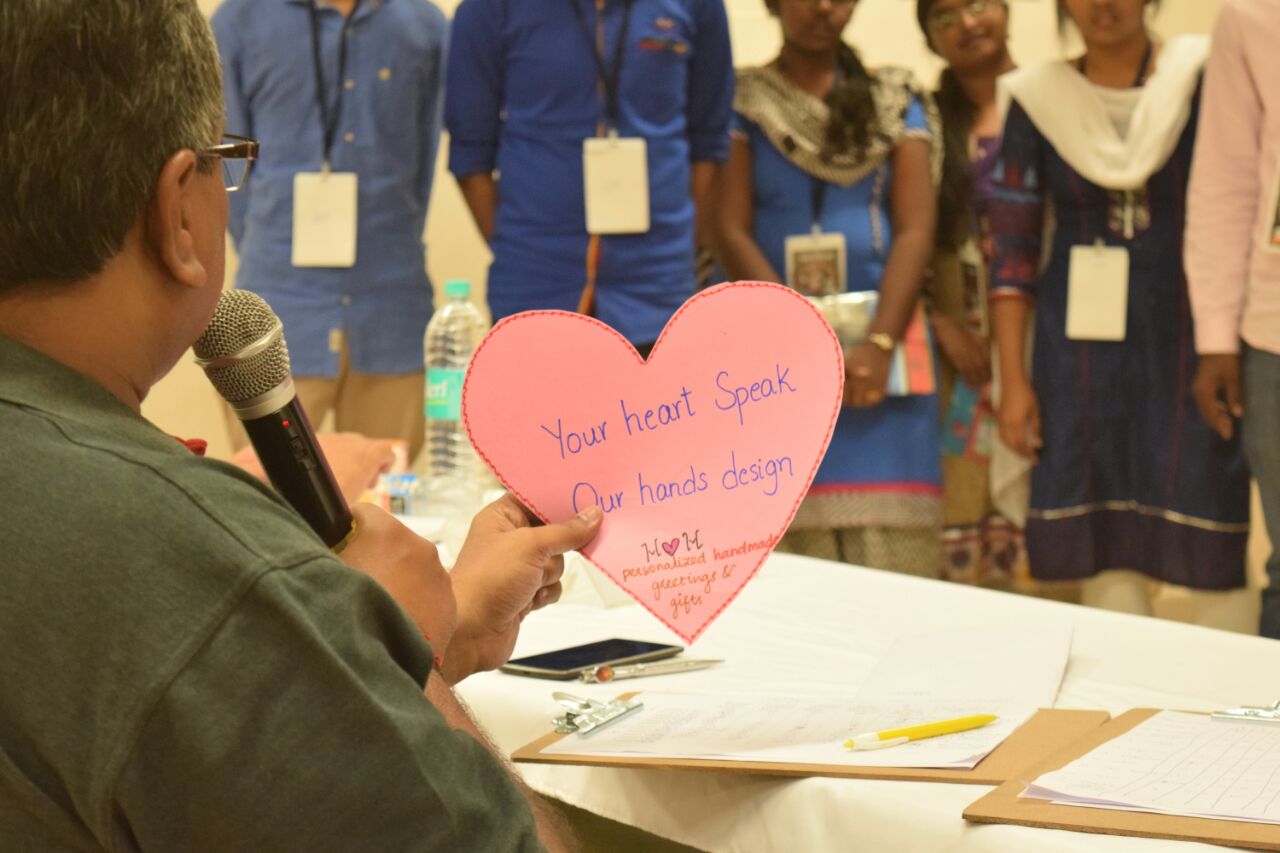 Your heart Speak
Our hands design
H♥H
personalized handmade
greetings &
gifts